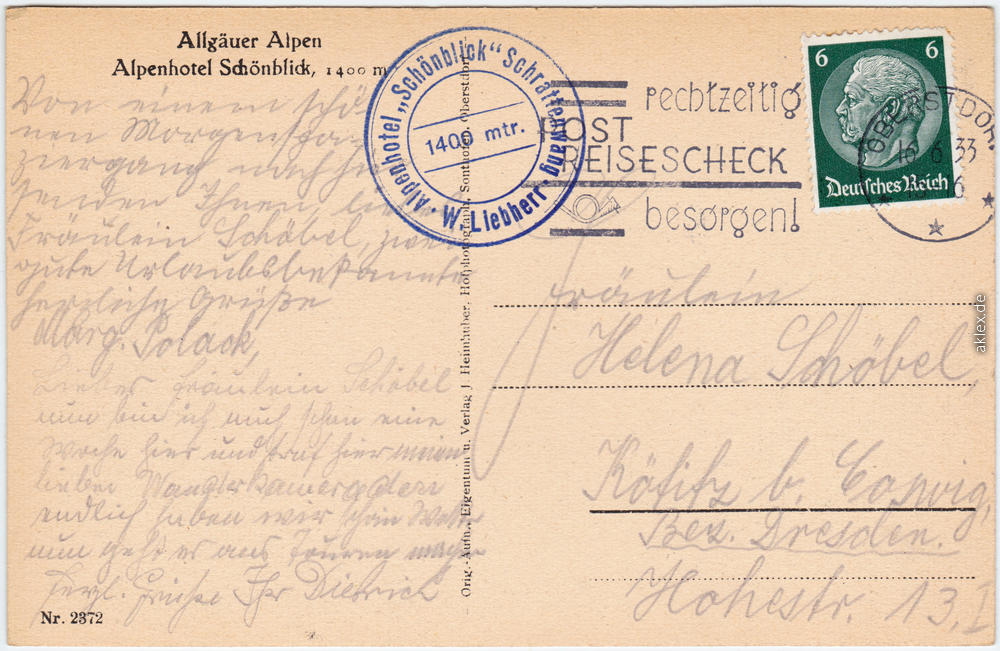 Allgäuer Alpen
Alpenhotel Schönblick, 1400 m
Von einem schö-
nen Morgenspa-
ziergang nach hier
senden Ihnen, liebes
Fräulein Schöbel, zwei
gute Urlaubsbekannte
herzliche Grüße
Marg. Polack,
Liebes Fräulein Schöbel
nun bin ich auch schon eine
Woche hier und traf hier meinen
lieben Wanderkameraden
endlich haben wir schön Wetter
nun geht es ans Touren machen
Herzl. Grüße Ihr Dietrich
Nr. 2372
Orig.-Aufn., Eigentum u. Verlag J. Heimhuber, Hofphotograph, Sonthofen, Oberstdorf
Alpenhotel „Schönblick“ Schrattenwang
1400 mtr.
W. Liebherr
rechtzeitig
POST
REISESCHECK
besorgen!
6 6
Deutsches Reich
OBERSTDORF
16 6 33
Fräulein
Helena Schöbel,
Kötitz b. Coswig,
Bez. Dresden.
Hohestr. 13, I
aklex.de